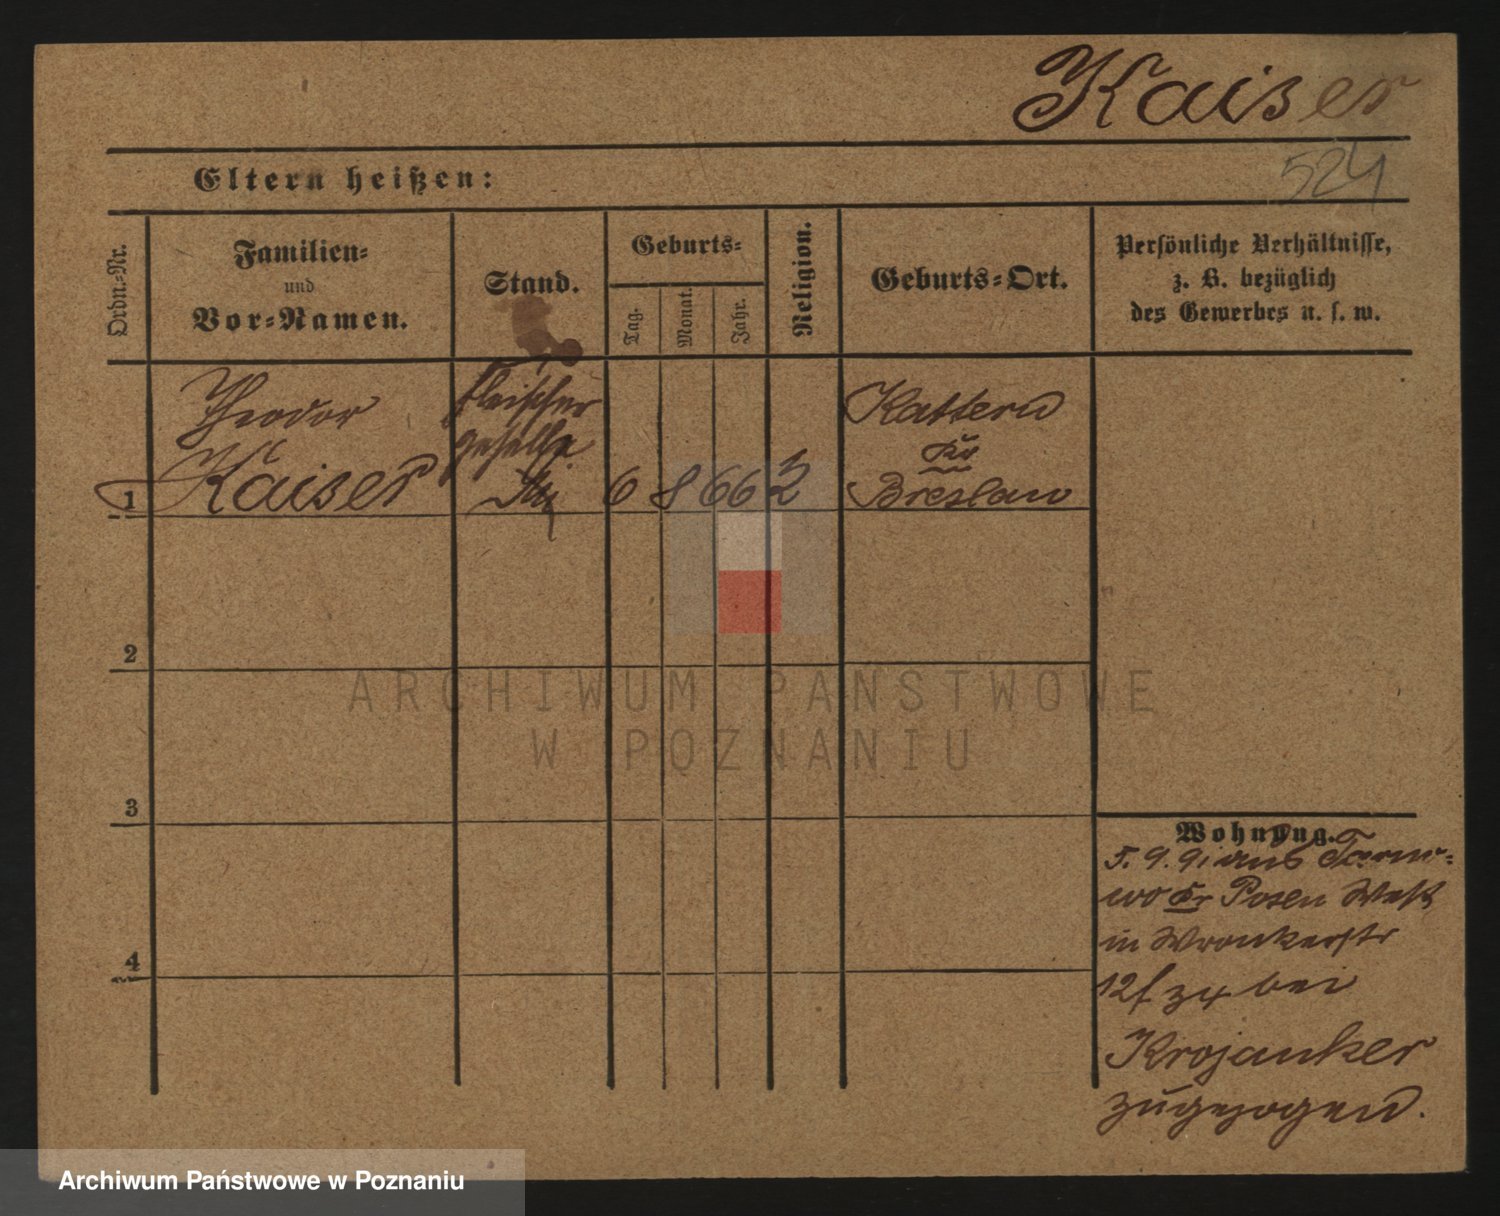 Kaiser
524
Eltern heißen:
Ordn.-Nr.
Familien-
und
Vor-Namen.
Stand.
Geburts-
Tag.
Monat.
Jahr.
Religion.
Geburts-Ort.
Persönliche Verhältnisse,
z. B. bezüglich
des Gewerbes u. s. w.
Theodor
Kaiser
Fleischer
geselle
1
6 8 66
Kattern
Kr
Breslau
2
3
4
Wohnung.
5. 9. 91 aus Tarno-
wo Kr Posen West
in Wronkerstr
12 bei
Krojanker
zugezogen.
ARCHIWUM PAŃSTWOWE
W POZNANIU
Archiwum Państwowe w Poznaniu